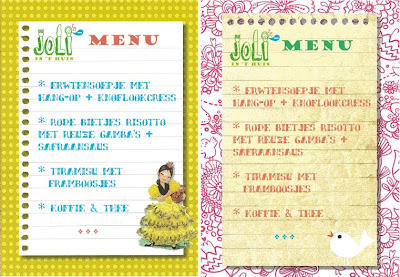 JOLI
IS 'T HUIS
MENU
* ERWTENSOEPJE MET
HANG-OP + KNOFLOOKCRESS
* RODE BIETJES RISOTTO
MET REUZE GAMBA'S +
SAFRAANSAUS
* TIRAMISU MET
FRAMBOOSJES
* KOFFIE & THEE
JOLI
IS 'T HUIS
MENU
* ERWTENSOEPJE MET
HANG-OP + KNOFLOOKCRESS
* RODE BIETJES RISOTTO
MET REUZE GAMBA'S +
SAFRAANSAUS
* TIRAMISU MET
FRAMBOOSJES
* KOFFIE & THEE